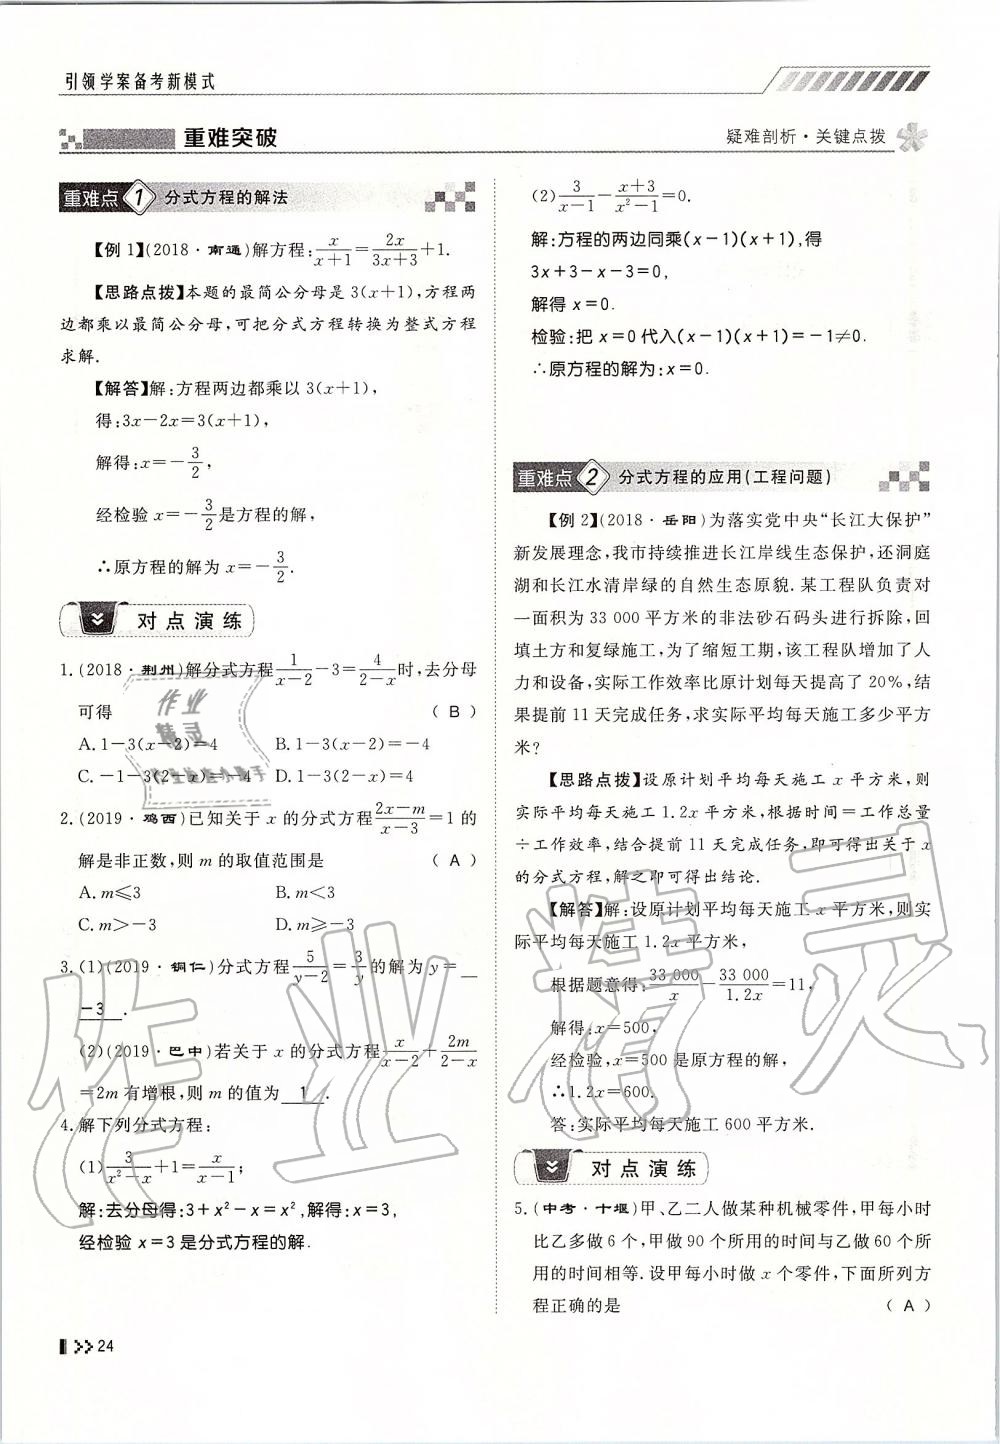 引领学案备考新模式
重难突破
疑难剖析·关键点拨
重难点 1 分式方程的解法
【例 1】(2018·南通)解方程:x/(x+1)=2x/(3x+3)+1.
【思路点拨】本题的最简公分母是 3(x+1),方程两
边都乘以最简公分母,可把分式方程转换为整式方程
求解.
【解答】解:方程两边都乘以 3(x+1),
得:3x-2x=3(x+1),
解得:x=-3/2,
经检验 x=-3/2是方程的解,
∴原方程的解为 x=-3/2.
对点演练
1.(2018·荆州)解分式方程1/(x-2)-3=4/(2-x)时,去分母
可得 ( B )
A.1-3(x-2)=4 B.1-3(x-2)=-4
C.-1-3(2-x)=-4 D.1-3(2-x)=4
2.(2019·鸡西)已知关于 x 的分式方程(2x-m)/(x-3)=1的
解是非正数,则 m 的取值范围是 ( A )
A.m≤3 B.m<3
C.m>-3 D.m≥-3
3.(1)(2019·铜仁)分式方程5/(y-2)=3/y的解为 y=
-3 .
(2)(2019·巴中)若关于 x 的分式方程x/(x-2)+2m/(2-x)
=2m 有增根,则 m 的值为 1 .
4.解下列分式方程:
(1)3/(x²-x)+1=x/(x-1);
解:去分母得:3+x²-x=x²,解得:x=3,
经检验 x=3 是分式方程的解.
(2)3/(x-1)-(x+3)/(x²-1)=0.
解:方程的两边同乘(x-1)(x+1),得
3x+3-x-3=0,
解得 x=0.
检验:把 x=0 代入(x-1)(x+1)=-1≠0.
∴原方程的解为:x=0.
重难点 2 分式方程的应用(工程问题)
【例 2】(2018·岳阳)为落实党中央“长江大保护”
新发展理念,我市持续推进长江岸线生态保护,还洞庭
湖和长江水清岸绿的自然生态原貌.某工程队负责对
一面积为 33 000 平方米的非法砂石码头进行拆除,回
填土方和复绿施工,为了缩短工期,该工程队增加了人
力和设备,实际工作效率比原计划每天提高了 20%,结
果提前 11 天完成任务,求实际平均每天施工多少平方
米?
【思路点拨】设原计划平均每天施工 x 平方米,则
实际平均每天施工 1.2x 平方米,根据时间=工作总量
÷工作效率,结合提前 11 天完成任务,即可得出关于 x
的分式方程,解之即可得出结论.
【解答】解:设原计划平均每天施工 x 平方米,则实
际平均每天施工 1.2x 平方米,
根据题意得:33 000/x-33 000/1.2x=11,
解得:x=500,
经检验,x=500 是原方程的解,
∴1.2x=600.
答:实际平均每天施工 600 平方米.
对点演练
5.(中考·十堰)甲、乙二人做某种机械零件,甲每小时
比乙多做 6 个,甲做 90 个所用的时间与乙做 60 个所
用的时间相等.设甲每小时做 x 个零件,下面所列方
程正确的是 ( A )
24
作业精灵
作业
精灵